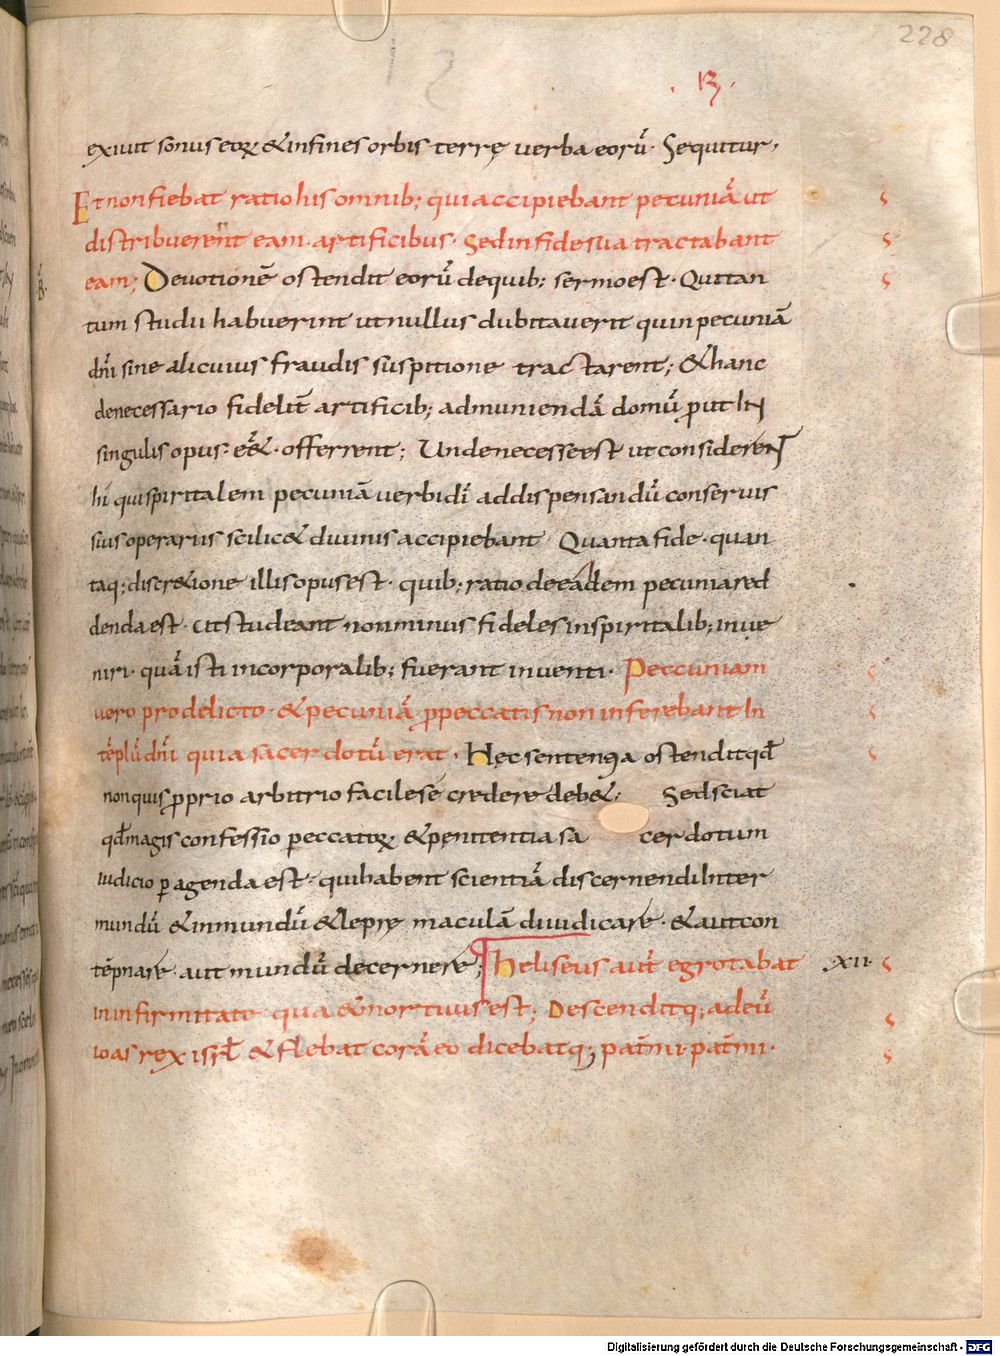 228
.B.
exiuit sonus eoꝝ & in fines orbis terrę uerba eorū. Sequitur,
Et non fiebat ratio his omnib; qui accipiebant pecuniā ut
distribuerent eam artificibus. Sed in fide sua tractabant
eam; Deuotionē ostendit eorū de quib; sermo est. Qui tan
tum studii habuerint ut nullus dubitauerit quin pecuniā
dn̄i sine alicuius fraudis suspitione tractarent; & hanc
denecessario fidelit̄ artificib; ad muniendā domū ꝓut in
singulis opus eēt offerrent; Unde necesse est ut considerent
hi qui spiritalem pecuniā uerbi dī ad dispensandū conseruis
suis operariis scilic& diuinis accipiebant. Quanta fide. quan
taq; discr&ione illis opus est. quib; ratio de eadem pecunia red
denda est. ut studeant non minus fideles in spiritalib; inue
niri. quā isti in corporalib; fuerant inuenti. Peccuniam
uero pro delicto. & pecuniā ꝓ peccatis non inferebant in
tēplū dn̄i quia sacerdotū erat. Hęc sentenția ostendit qđ
non quis ꝓprio arbitrio facile sē credere deb&. Sed sciat
qđ magis confessio peccatoꝝ & pęnitentia sa cerdotum
iudicio ꝑagenda est. qui habent scientiā discernendi inter
mundū & inmundū & leprę maculā diiudicare. & aut con
tēpnare. aut mundū decernere; Heliseus aut̄ egrotabat XII
in infirmitate qua & mortuus est; Descenditq; ad eū
ioas rex isrl̄ & flebat corā eo dicebatq; pat̄ mi. pat̄ mi.
Digitalisierung gefördert durch die Deutsche Forschungsgemeinschaft - DFG